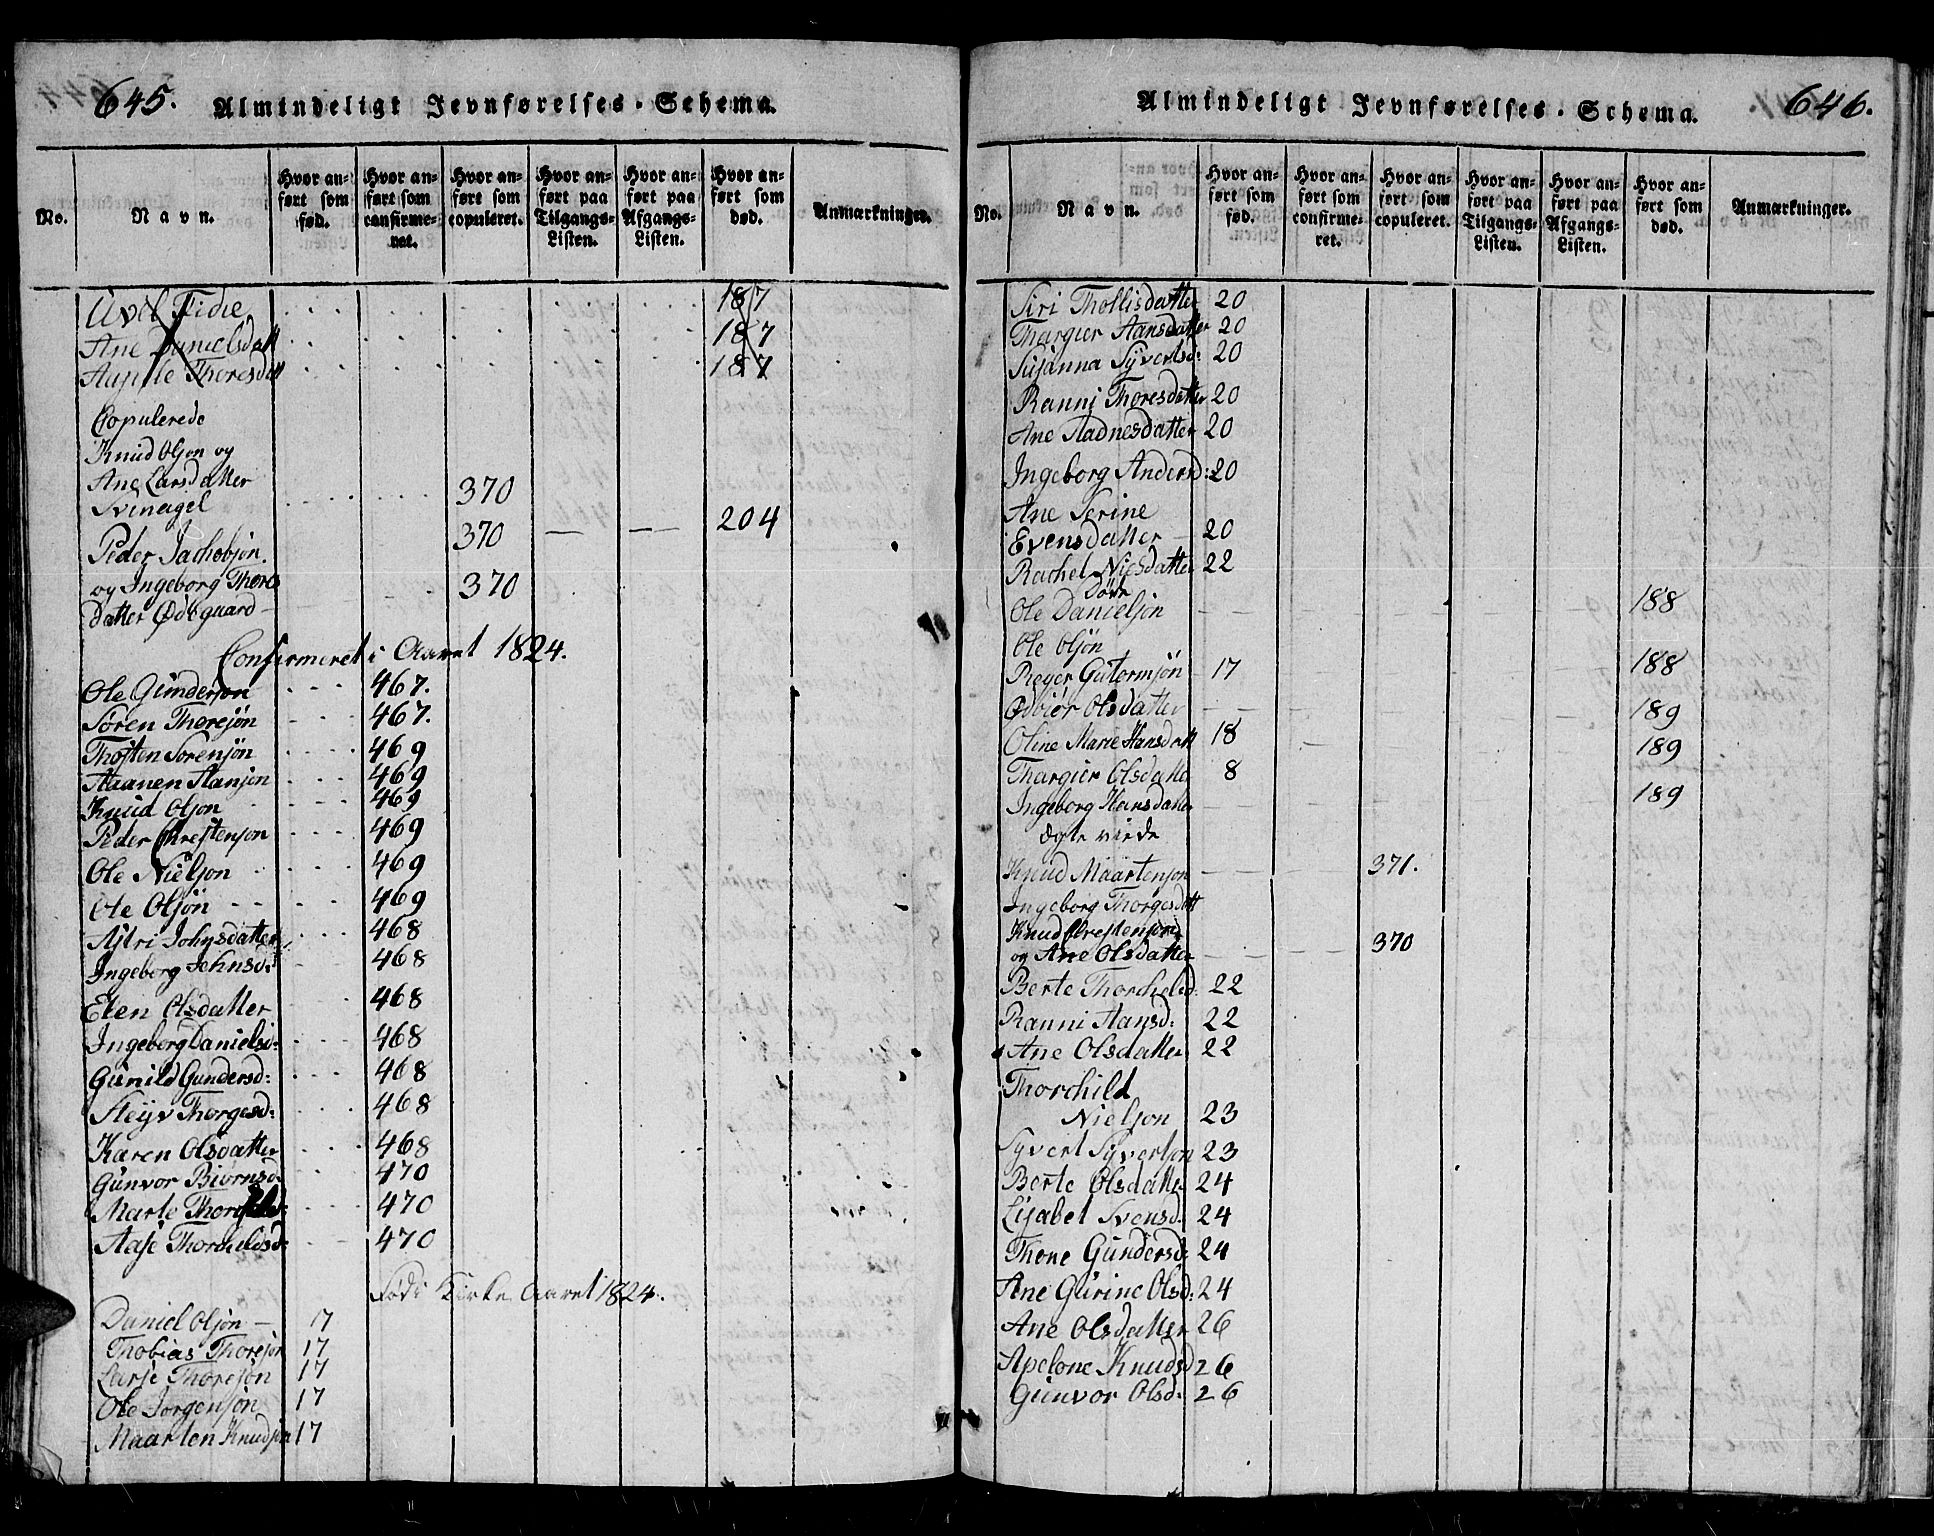 645. Almindeligt Jevnførelses-Schema.
No. Navn. Hvor anført som fød. Hvor anført som confirmeret. Hvor anført som copuleret. Hvor anført paa Tilgangs-Listen. Hvor anført paa Afgangs-Listen. Hvor anført som død. Anmærkninger.
187
Ane Danielsdatt 187
Thoresdatt 187
Copulerede
Knud Olsøn og
Ane Larsdatter
Svinagel 370
Peder Jachobsøn 370 — — 204
og Ingeborg Thores 370
Datter Ødegaard —
Confirmeret i Aaret 1824.
Ole Gundersøn 467.
Søren Thoresøn 467.
Thosten Sørensøn 469
Aanen Aansøn 469
Knud Olsøn 469
Peder Chrestensøn 469
Ole Nielsøn 469
Ole Olsøn 469
Astri Johnsdatter 468
Ingeborg Johnsd: 468
Elen Olsdatter 468
Ingeborg Daniels: 468
Gunild Gundersd: 468
Thorgesd: 468
Karen Olsdatter 468
Gunvor Biørnsd: 470
Marte 470
Aase Thorchildsd: 470
Fød i Kirke Aaret 1824.
Daniel Olsøn — 7
Thobias Thoresøn 17
Larse Thoresøn 17
Ole Jørgensøn 17
Maarten Knudsøn 17
Almindeligt Jevnførelses-Schema. 646.
No. Navn. Hvor anført som fød. Hvor anført som confirmeret. Hvor anført som copuleret. Hvor anført paa Tilgangs-Listen. Hvor anført paa Afgangs-Listen. Hvor anført som død. Anmærkninger.
Siri Thollisdatter 20
Thargier Aansdatter 20
Susanna Syvertsd: 20
Ranni Thoresdatter 20
Ane Aadnesdatter 20
Ingeborg Andersd: 20
Ane Serine
Evensdatter — 20
Rachel Nielsdatter 22
Døde
Ole Danielsøn 188
Ole Olsøn
Reyer Gutormsøn 17 188
Ødbiør Olsdatter 189
Oline Marie Hansdatt 18 189
Thargier Olsdatter 8
Ingeborg Hansdatter 189
Ægte viede
Knud Maartensøn 371.
Ingeborg Thorgesdatt
Knud Chrestensøn
og Ane Olsdatter 370
Berte Thorchilsd: 22
Ranni Aansd: 22
Ane Olsdatter 22
Thorchild
Nielsøn 23
Syvert Syvertsøn 23
Berte Olsdatter 24
Lisabet Svensd: 24
Thone Gundersd: 24
Ane Gurine Olsd: 24
Ane Olsdatter 26
Apelone Knudsd 26
Gunvor Olsd: 26